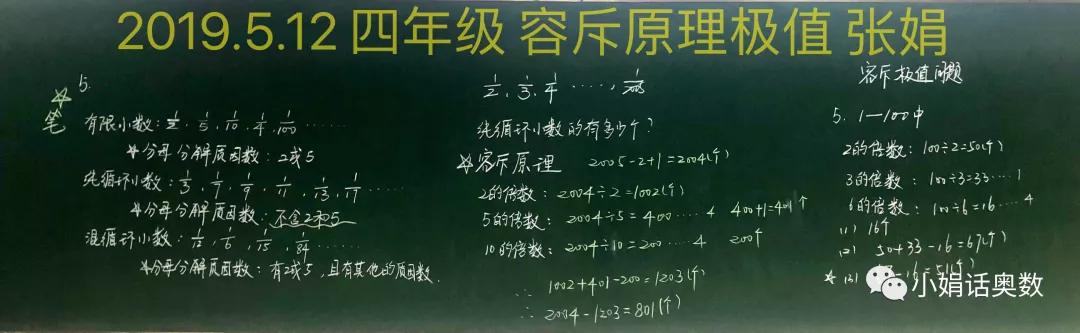 2019.5.12 四年级 容斥原理极值 张娟
5.
☆笔
有限小数: 1/2, 1/5, 1/10, 1/4, 1/100 ……
☆分母分解质因数: 2或5
纯循环小数: 1/3, 1/7, 1/9, 1/11, 1/13, 1/17 ……
☆分母分解质因数: 不含2和5
混循环小数: 1/6, 1/15, 1/84 ……
☆分母分解质因数: 有2或5, 且有其他的质因数.
1/2, 1/3, 1/4 ……, 1/2005
纯循环小数的有多少个?
☆容斥原理 2005-2+1=2004(个)
2的倍数: 2004÷2=1002(个)
5的倍数: 2004÷5=400……4 400+1=401个
10的倍数: 2004÷10=200……4 200个
∴ 1002+401-200=1203(个)
∴ 2004-1203=801(个)
容斥极值问题
5. 1—100中
2的倍数: 100÷2=50(个)
3的倍数: 100÷3=33…1
6的倍数: 100÷6=16…4
(1) 16个
(2) 50+33-16=67(个)
☆(3) -16=51(个)
小娟话奥数